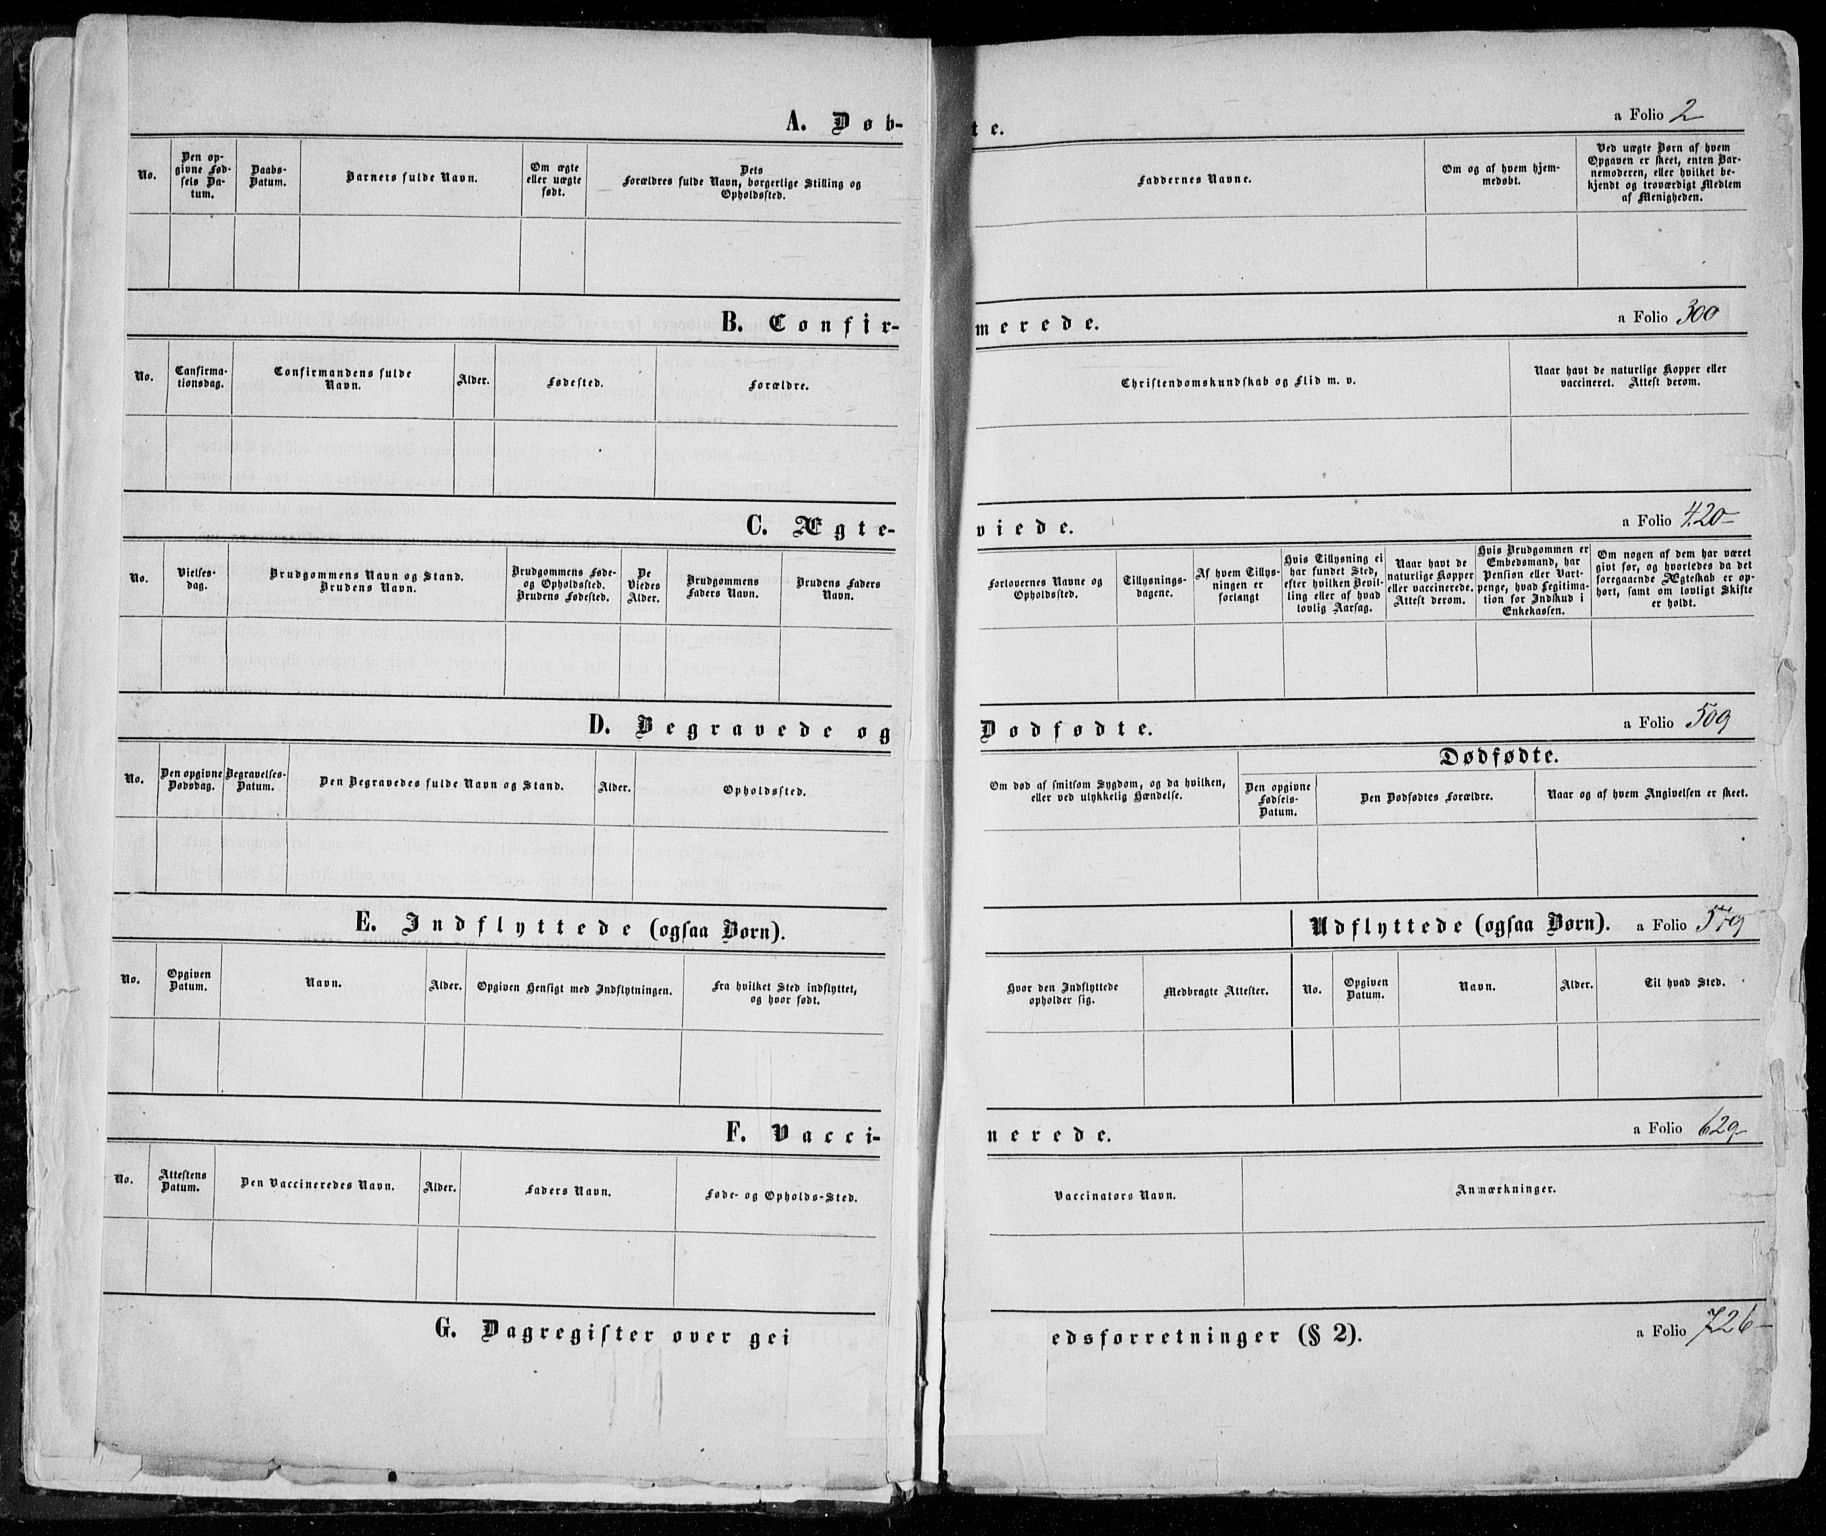 A. Døb-
te.
a Folio 2
No.
Den op-
givne Fød-
sels Da-
tum.
Daabs-
Datum.
Barnets fulde Navn.
Om ægte
eller uægte
født.
Dets
Forældres fulde Navn, borgerlige Stilling og
Opholdssted.
Faddernes Navne.
Om og af hvem hjem-
medøbt.
Ved uægte Børn af hvem
Opgaven er skeet, enten Bar-
nemoderen, eller hvilket be-
kjendt og troværdigt Medlem
af Menigheden.
B. Confir-
merede.
a Folio 300
No.
Canfirma-
tionsdag.
Confirmandens fulde
Navn.
Alder.
Fødested.
Forældre.
Christendomskundskab og Flid m. v.
Naar havt de naturlige Kopper eller
vaccineret. Attest derom.
C. Ægte-
viede.
a Folio 420-
No.
Vielses-
dag.
Brudgommens Navn og Stand.
Brudens Navn.
Brudgommens Føde-
og Opholdssted.
Brudens Fødested.
De
Viedes
Alder.
Brudgommens
Faders Navn.
Brudens Faders
Navn.
Forlovernes Navne og
Opholdssted.
Tillysnings-
dagene.
Af hvem Tillys-
ningen er
forlangt
Hvis Tillysning ei
har fundet Sted,
efter hvilken Bevil-
ling eller af hvad
lovlig Aarsag.
Naar havt de
naturlige Kopper
eller vaccinerede.
Attest derom.
Hvis Brudgommen er
Embedsmand, har
Pension eller Vart-
penge, hvad Legitima-
tion for Indskud i
Enkekassen.
Om nogen af dem har været
givt før, og hvorledes da det
foregaaende Ægteskab er op-
hørt, samt om lovligt Skifte
er holdt.
D. Begravede og
Dødfødte.
a Folio 509
No.
Den opgivne
Dødsdag.
Begravelses-
Datum.
Den Begravedes fulde Navn og Stand.
Alder.
Opholdssted.
Om død af smitsom Sygdom, og da hvilken,
eller ved ulykkelig Hændelse.
Dødfødte.
Den opgivne
Fødsels-
Datum.
Den Dødfødtes Forældre.
Naar og af hvem Angivelsen er skeet.
E. Indflyttede (ogsaa Børn).
Udflyttede (ogsaa Børn).
a Folio 579
No.
Opgiven
Datum.
Navn.
Alder.
Opgiven Hensigt med Indflytningen.
Fra hvilket Sted indflyttet,
og hvor født.
Hvor den Indflyttede
opholder sig.
Medbragte Attester.
No.
Opgiven
Datum.
Navn.
Alder.
Til hvad Sted.
F. Vacci-
nerede.
a Folio 629-
No.
Attestens
Datum.
Den Vaccineredes Navn.
Alder.
Faders Navn.
Føde- og Opholds-Sted.
Vaccinators Navn.
Anmærkninger.
G. Dagregister over gei
edsforretninger (§ 2).
a Folio 726-